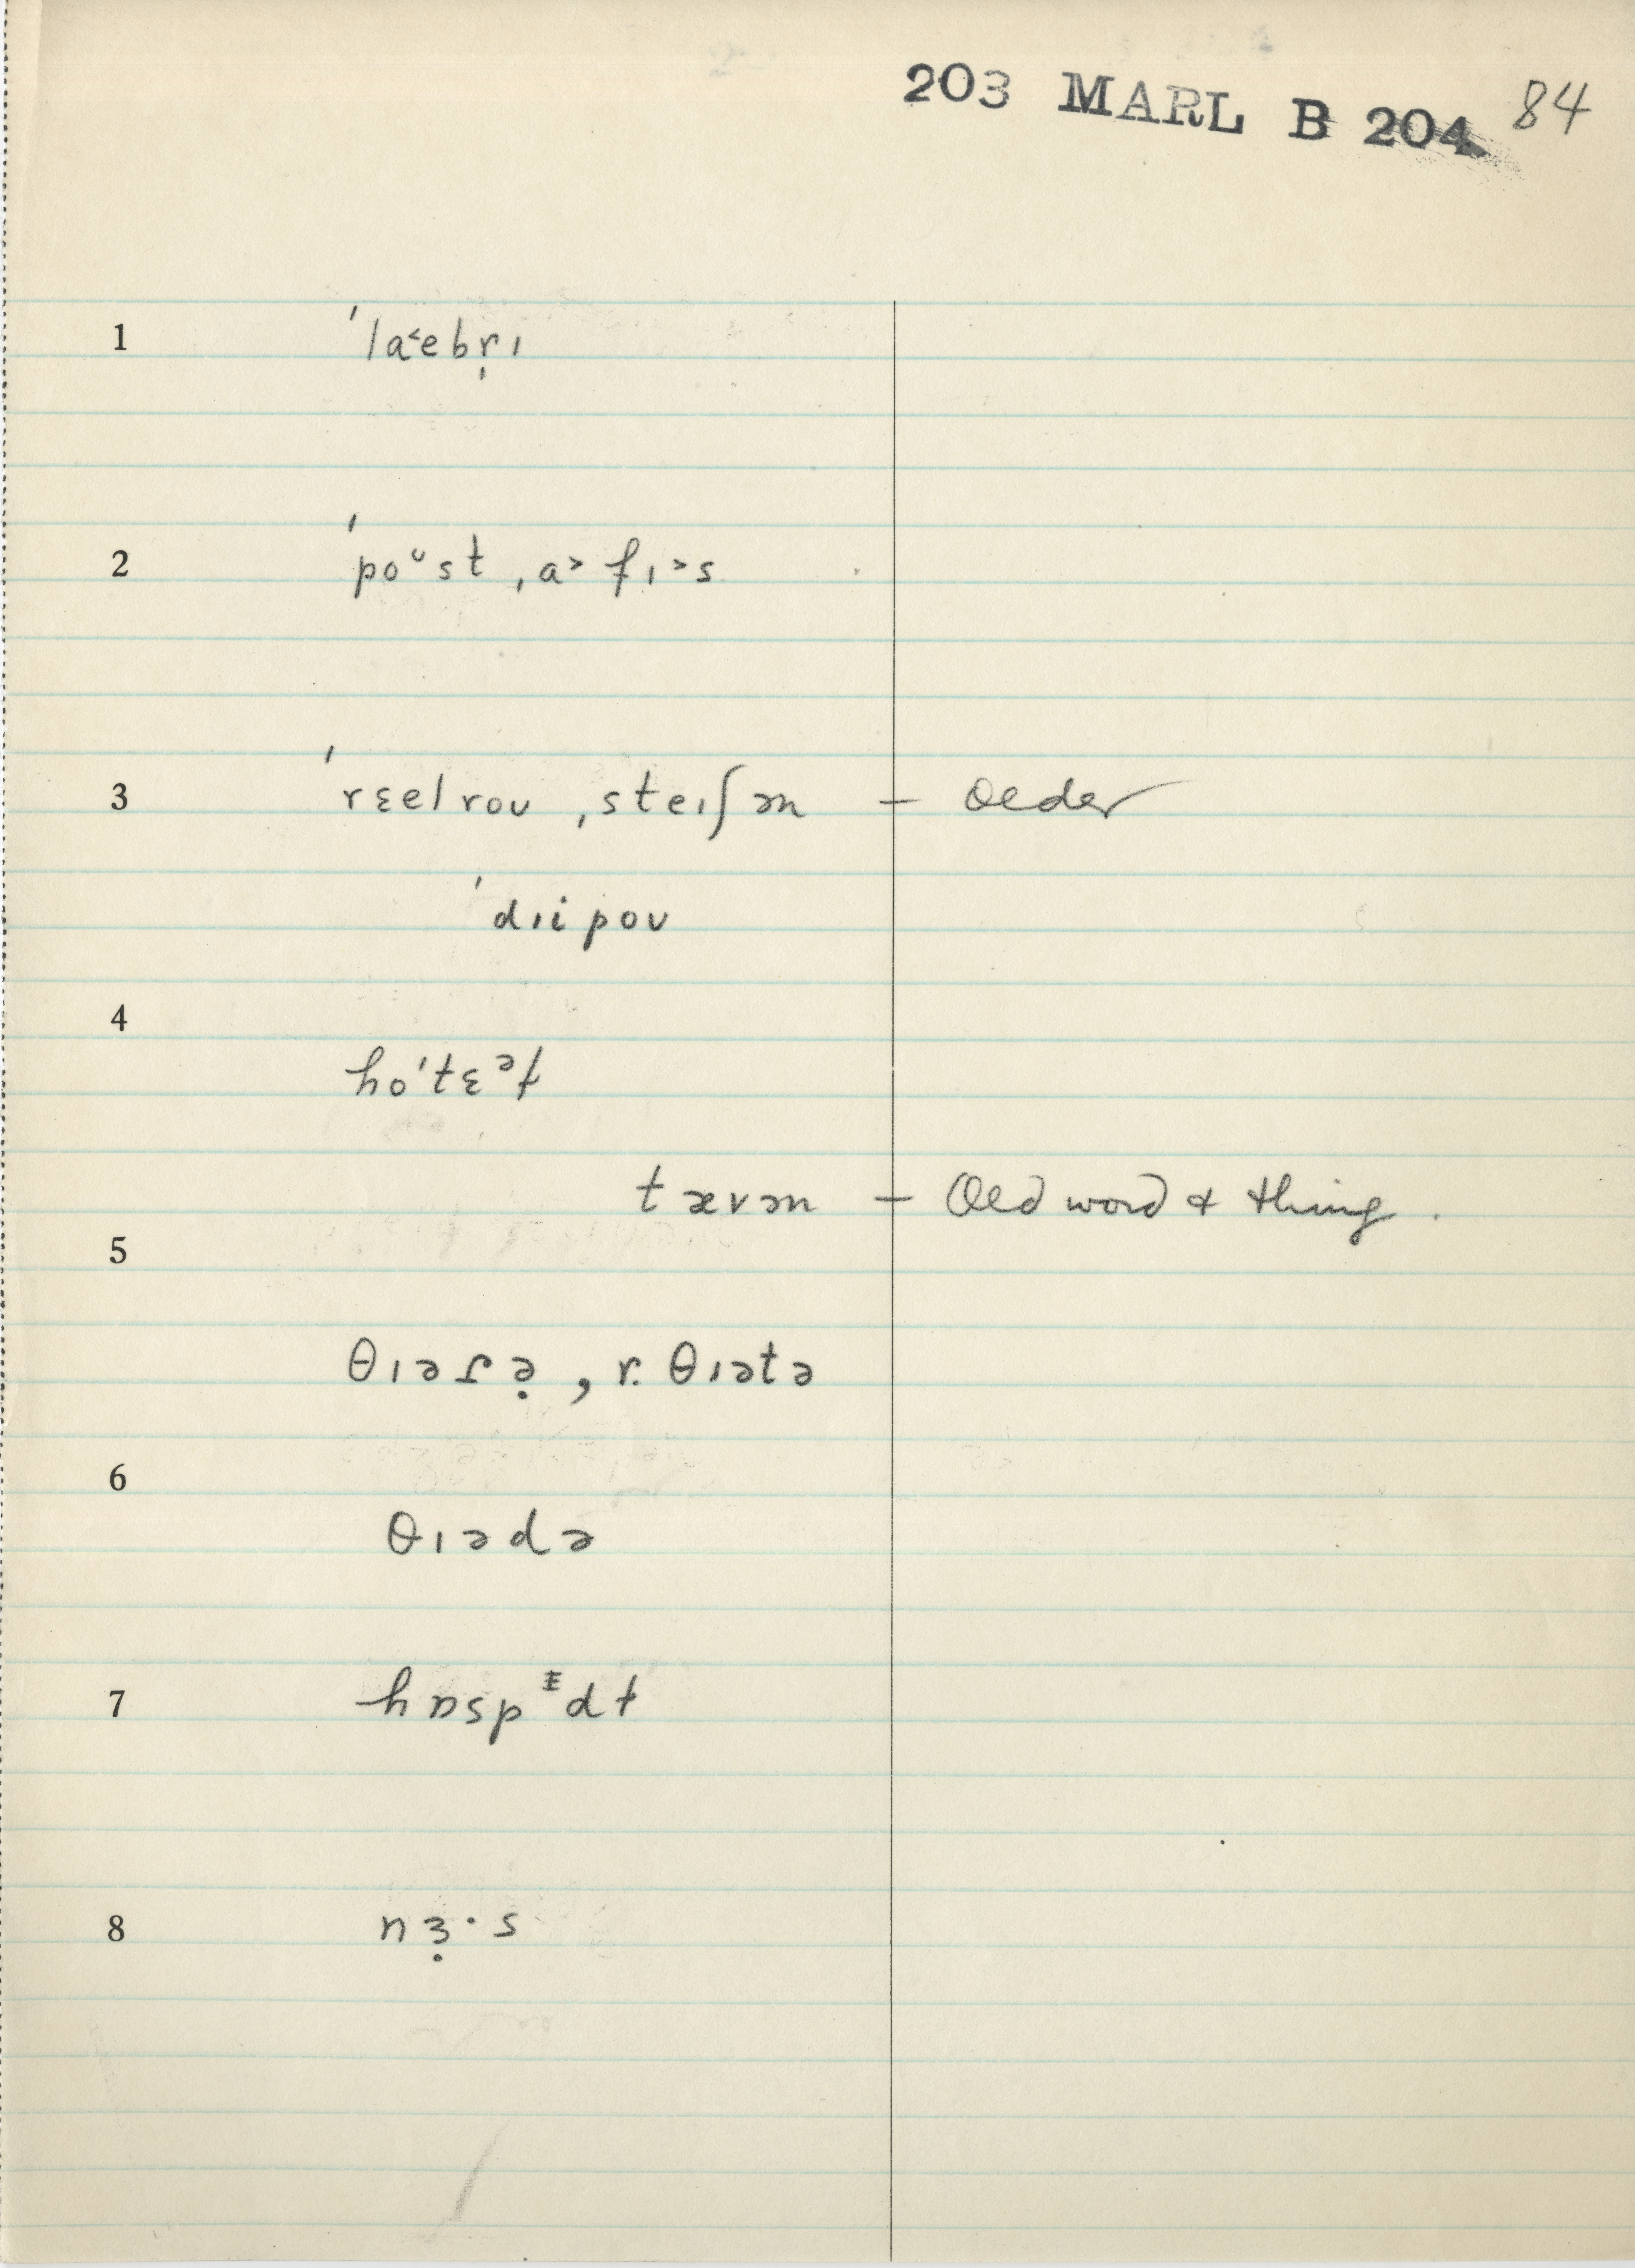 203 MARL B 204 84
1 ˈla˂ebr̩ɪ
2 ˈpoᶷst ˌa˃fɪ˃s
3 ˈrɛelroʊ ˌsteɪʃən – Older
ˈdɪipoʊ
4
hoˈtɛᵊɫ
tævən – Old word & thing.
5
θɪəɾə̣, r. θɪətə
6
θɪədə
7 hɒspᵻdɫ
8 nɜ̣·s